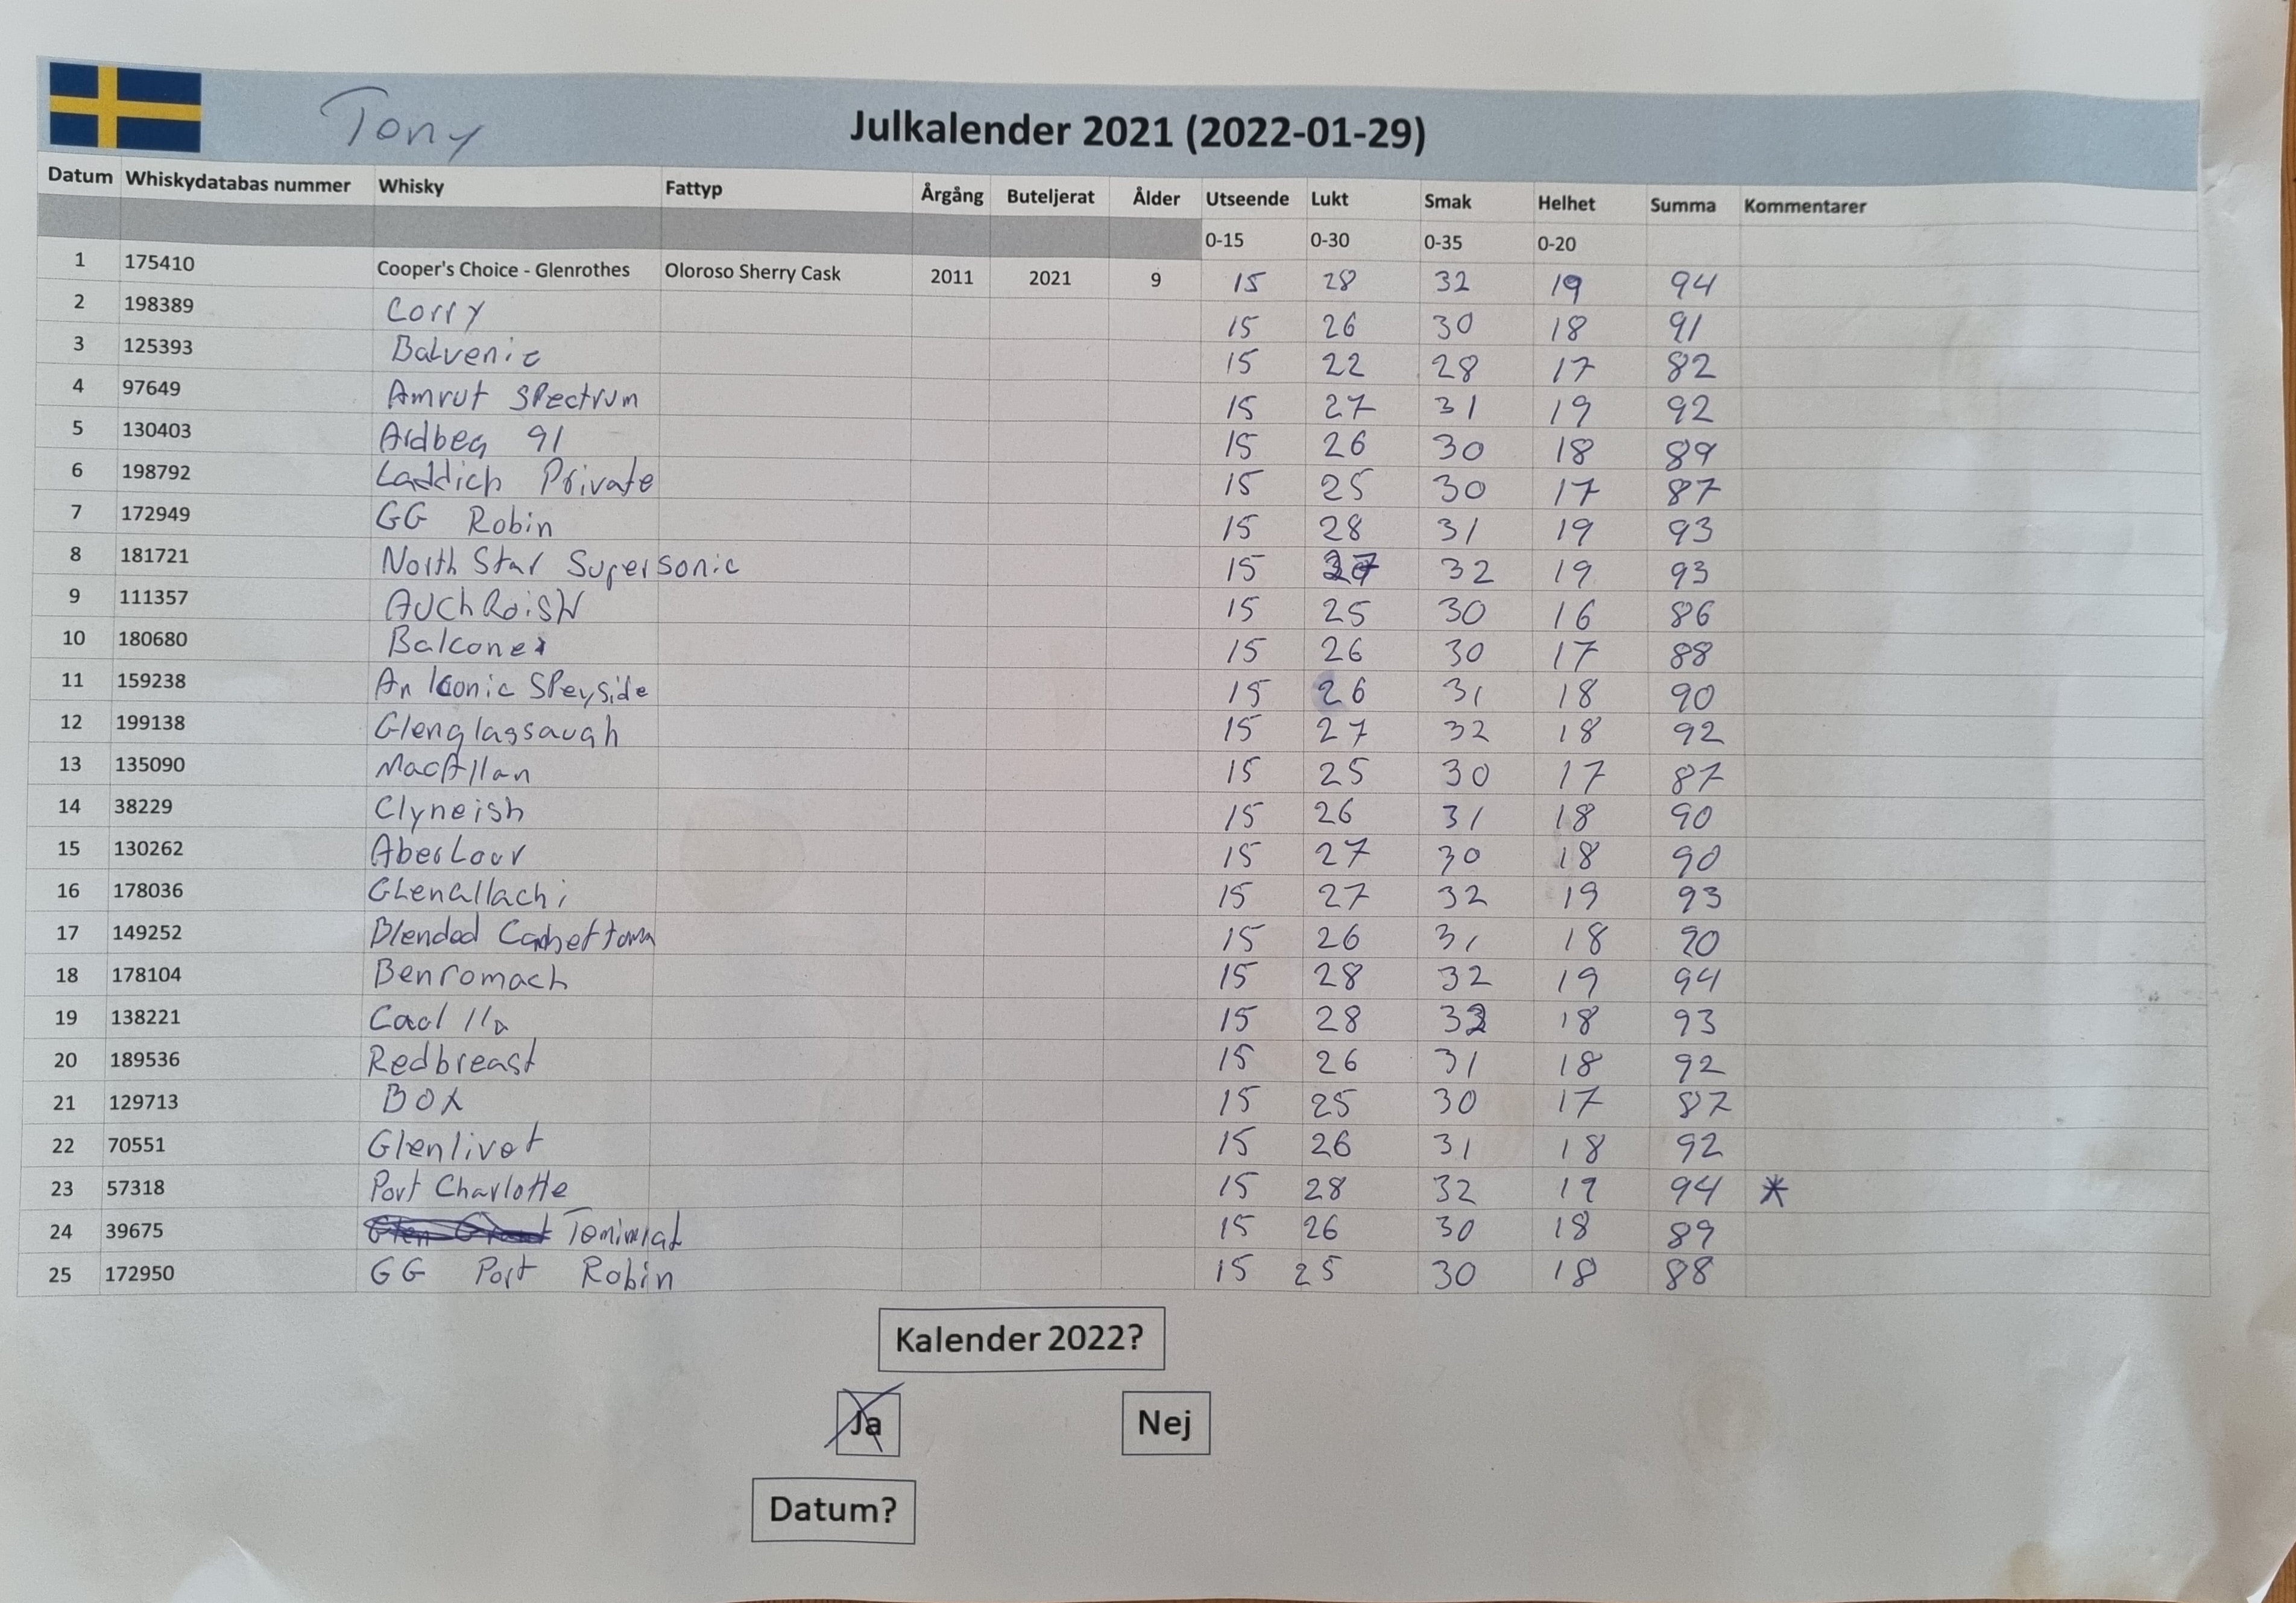 Tony Julkalender 2021 (2022-01-29)
Datum Whiskydatabas nummer Whisky Fattyp Årgång Buteljerat Ålder Utseende Lukt Smak Helhet Summa Kommentarer
0-15 0-30 0-35 0-20
1 175410 Cooper's Choice - Glenrothes Oloroso Sherry Cask 2011 2021 9 15 28 32 19 94
2 198389 Corry 15 26 30 18 91
3 125393 Balvenie 15 22 28 17 82
4 97649 Amrut Spectrum 15 27 31 19 92
5 130403 Ardbeg 91 15 26 30 18 89
6 198792 Laddich Private 15 25 30 17 87
7 172949 GG Robin 15 28 31 19 93
8 181721 North Star Supersonic 15 27 32 19 93
9 111357 AuchRoisk 15 25 30 16 86
10 180680 Balcones 15 26 30 17 88
11 159238 An Iconic Speyside 15 26 31 18 90
12 199138 Glenglassaugh 15 27 32 18 92
13 135090 MacAllan 15 25 30 17 87
14 38229 Clyneish 15 26 31 18 90
15 130262 Aberlour 15 27 30 18 90
16 178036 GlenAllachi 15 27 32 19 93
17 149252 Blended 15 26 31 18 90
18 178104 Benromach 15 28 32 19 94
19 138221 Caol Ila 15 28 32 18 93
20 189536 Redbreast 15 26 31 18 92
21 129713 BOX 15 25 30 17 87
22 70551 Glenlivet 15 26 31 18 92
23 57318 Port Charlotte 15 28 32 19 94 *
24 39675 Glen Grant 15 26 30 18 89
25 172950 GG Port Robin 15 25 30 18 88
Kalender 2022?
Ja Nej
Datum?